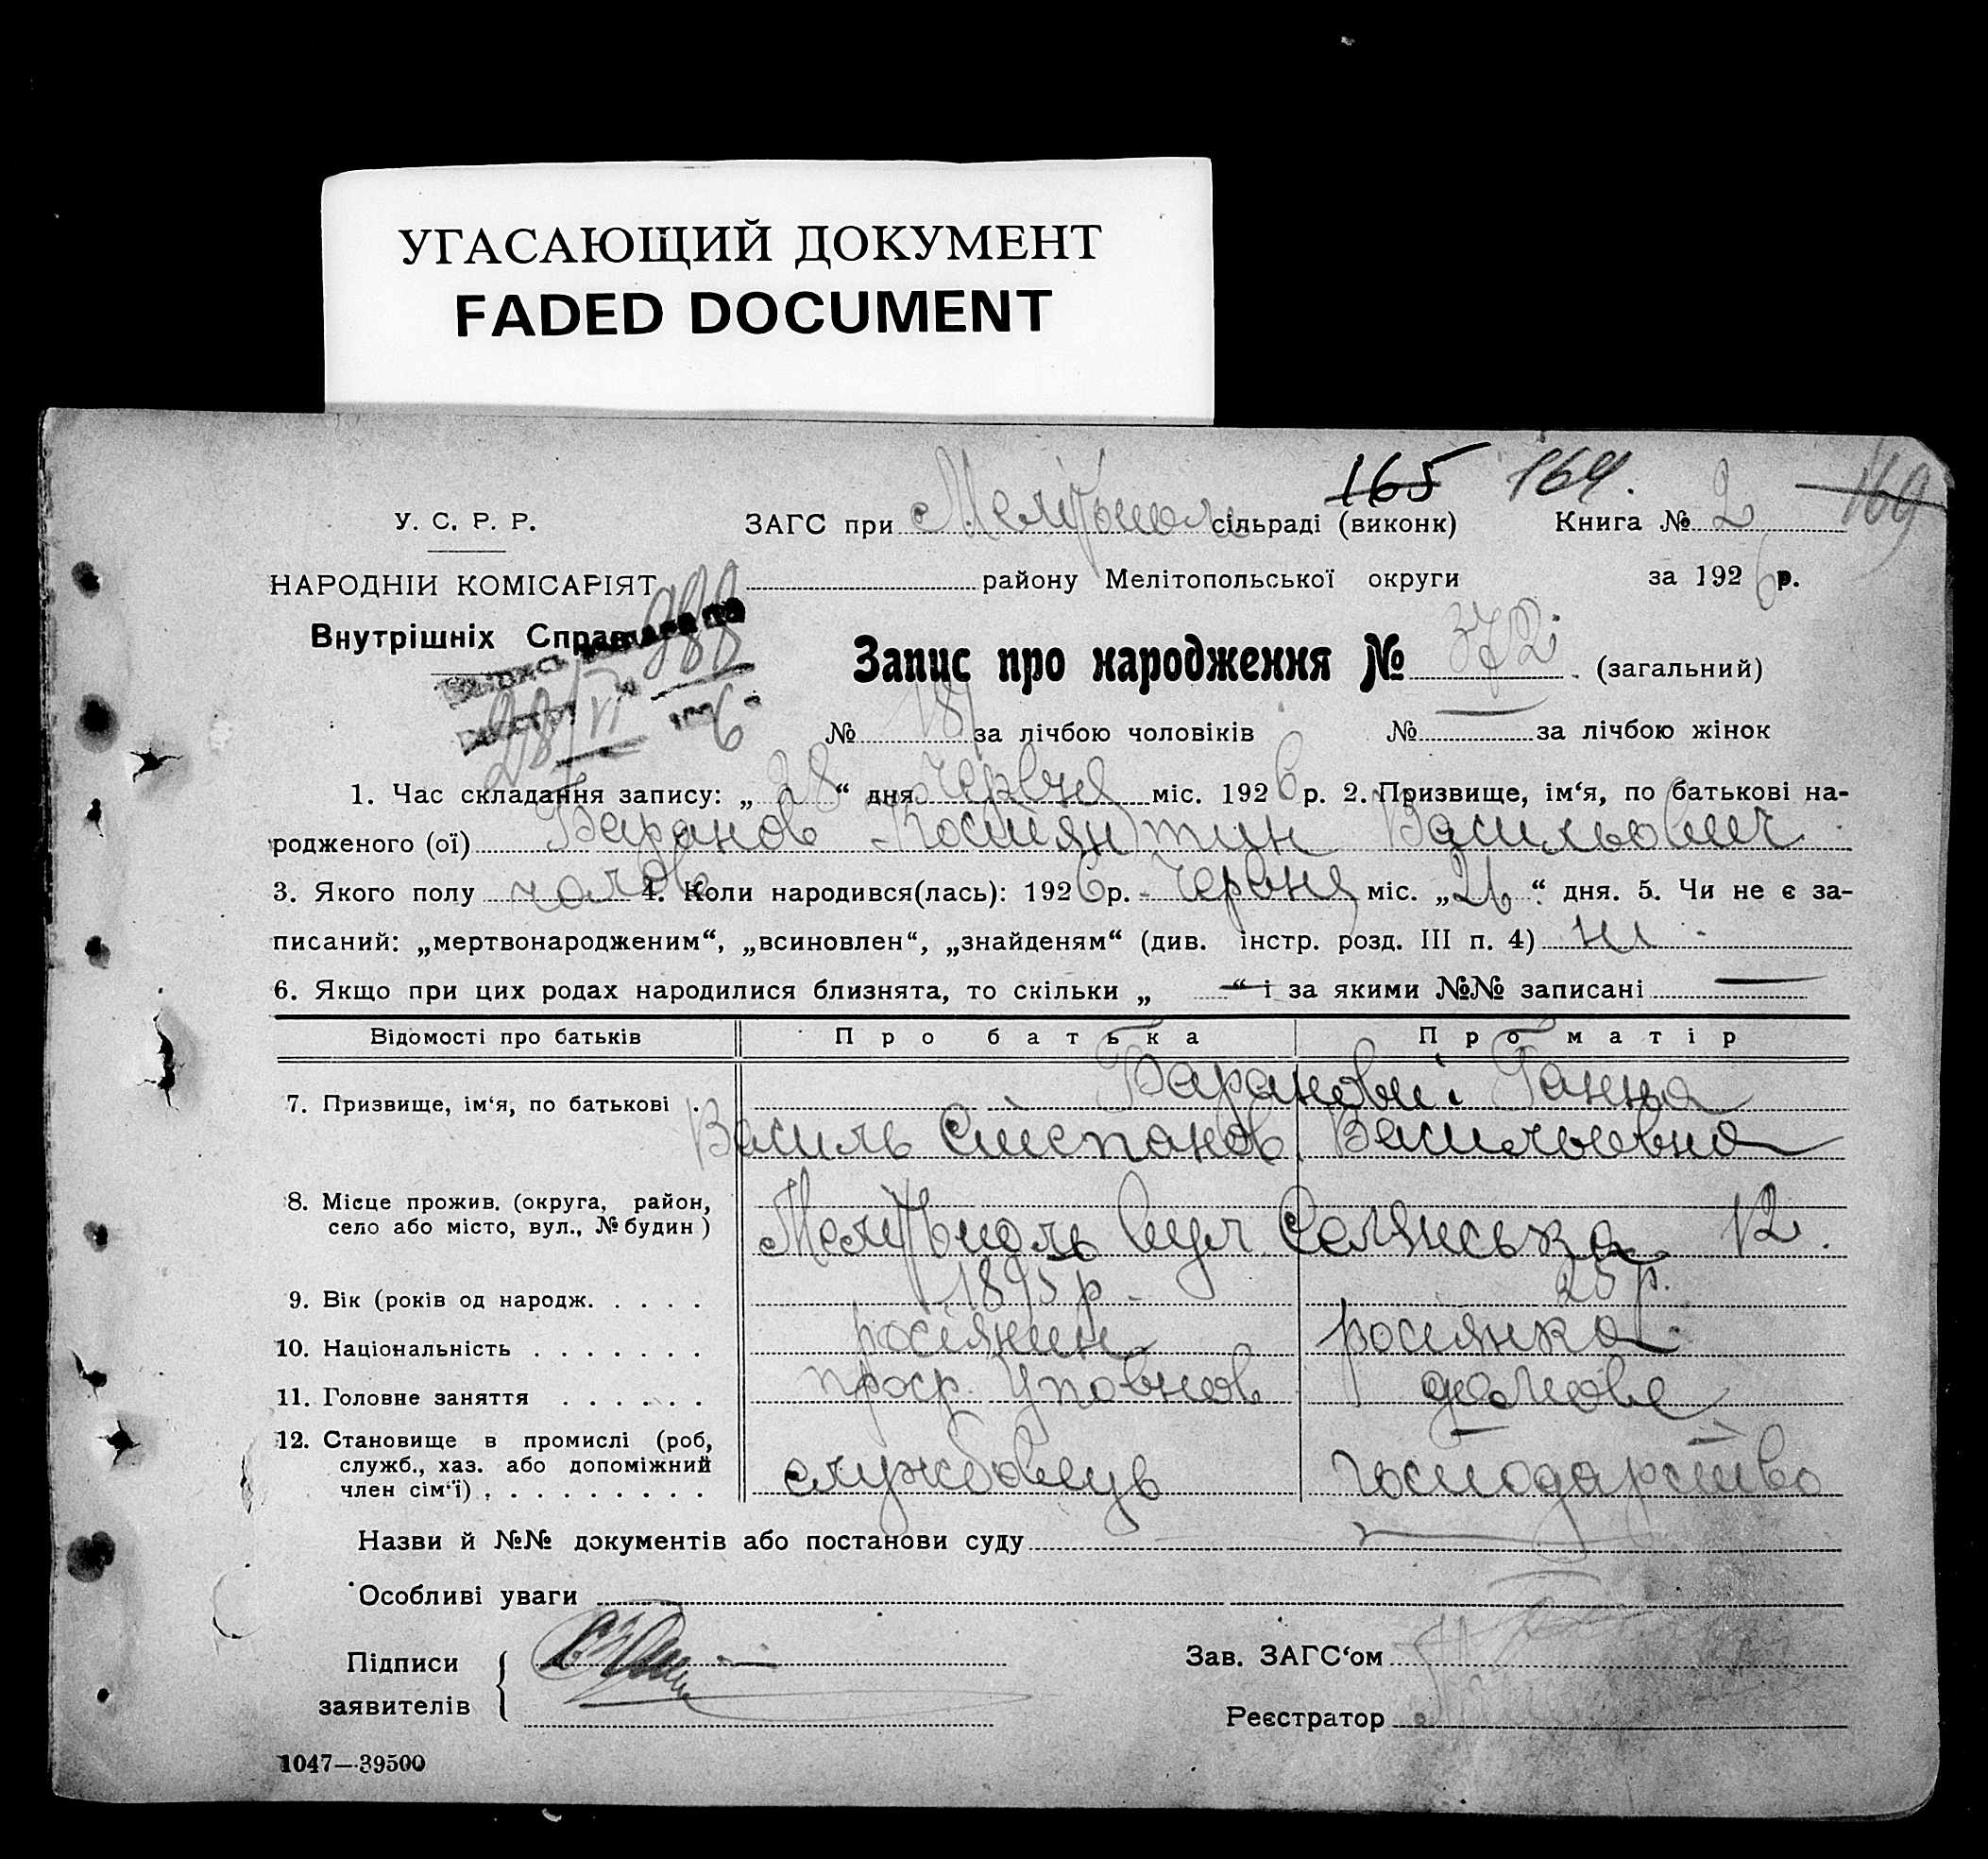 УГАСАЮЩИЙ ДОКУМЕНТ
FADED DOCUMENT
165 164. 169
У. С. Р. Р. ЗАГС при Мелітополь сільраді (виконк) Книга № 2
НАРОДНІЙ КОМІСАРІЯТ районy Мелітопольської округи за 1926 р.
Внутрішніх Справ 988
Запис про народження № 372 (загальний)
28/VI 1926
№ 187 за лічбою чоловіків № — за лічбою жінок
1. Час складання запису: „28“ дня Червня міс. 1926 р. 2. Призвище, ім‘я, по батькові на-
родженого (ої) Баранов Костянтин Васильович
3. Якого полу чолов 4. Коли народився(лась): 1926 р. Червня міс. „26“ дня. 5. Чи не є за-
писаний: „мертвонародженим“, „всиновлен“, „знайденям“ (див. інстр. розд. III п. 4) ні
6. Якщо при цих родах народилися близнята, то скільки „ — “ і за якими №№ записані —
Відомості про батьків Про батька Про матір
7. Призвище, ім‘я, по батькові . Баранови Ганна
Василь Степанов Васильевна
8. Місце прожив. (округа, район,
село або місто, вул., № будин ) Мелітополь вул Селянська 12.
9. Вік (років од народж. . . . . 1895 р. 25 р.
10. Національність . . . . . . . росіянин росіянка
11. Головне заняття . . . . . . домове
12. Становище в промислі (роб,
служб., хаз. або допоміжний
член сім‘ї) . . . . . . . . . службовець господарство
Назви й №№ документів або постанови суду —
Особливі уваги
Підписи Зав. ЗАГС‘ом
заявителів Реєстратор
1047—39500